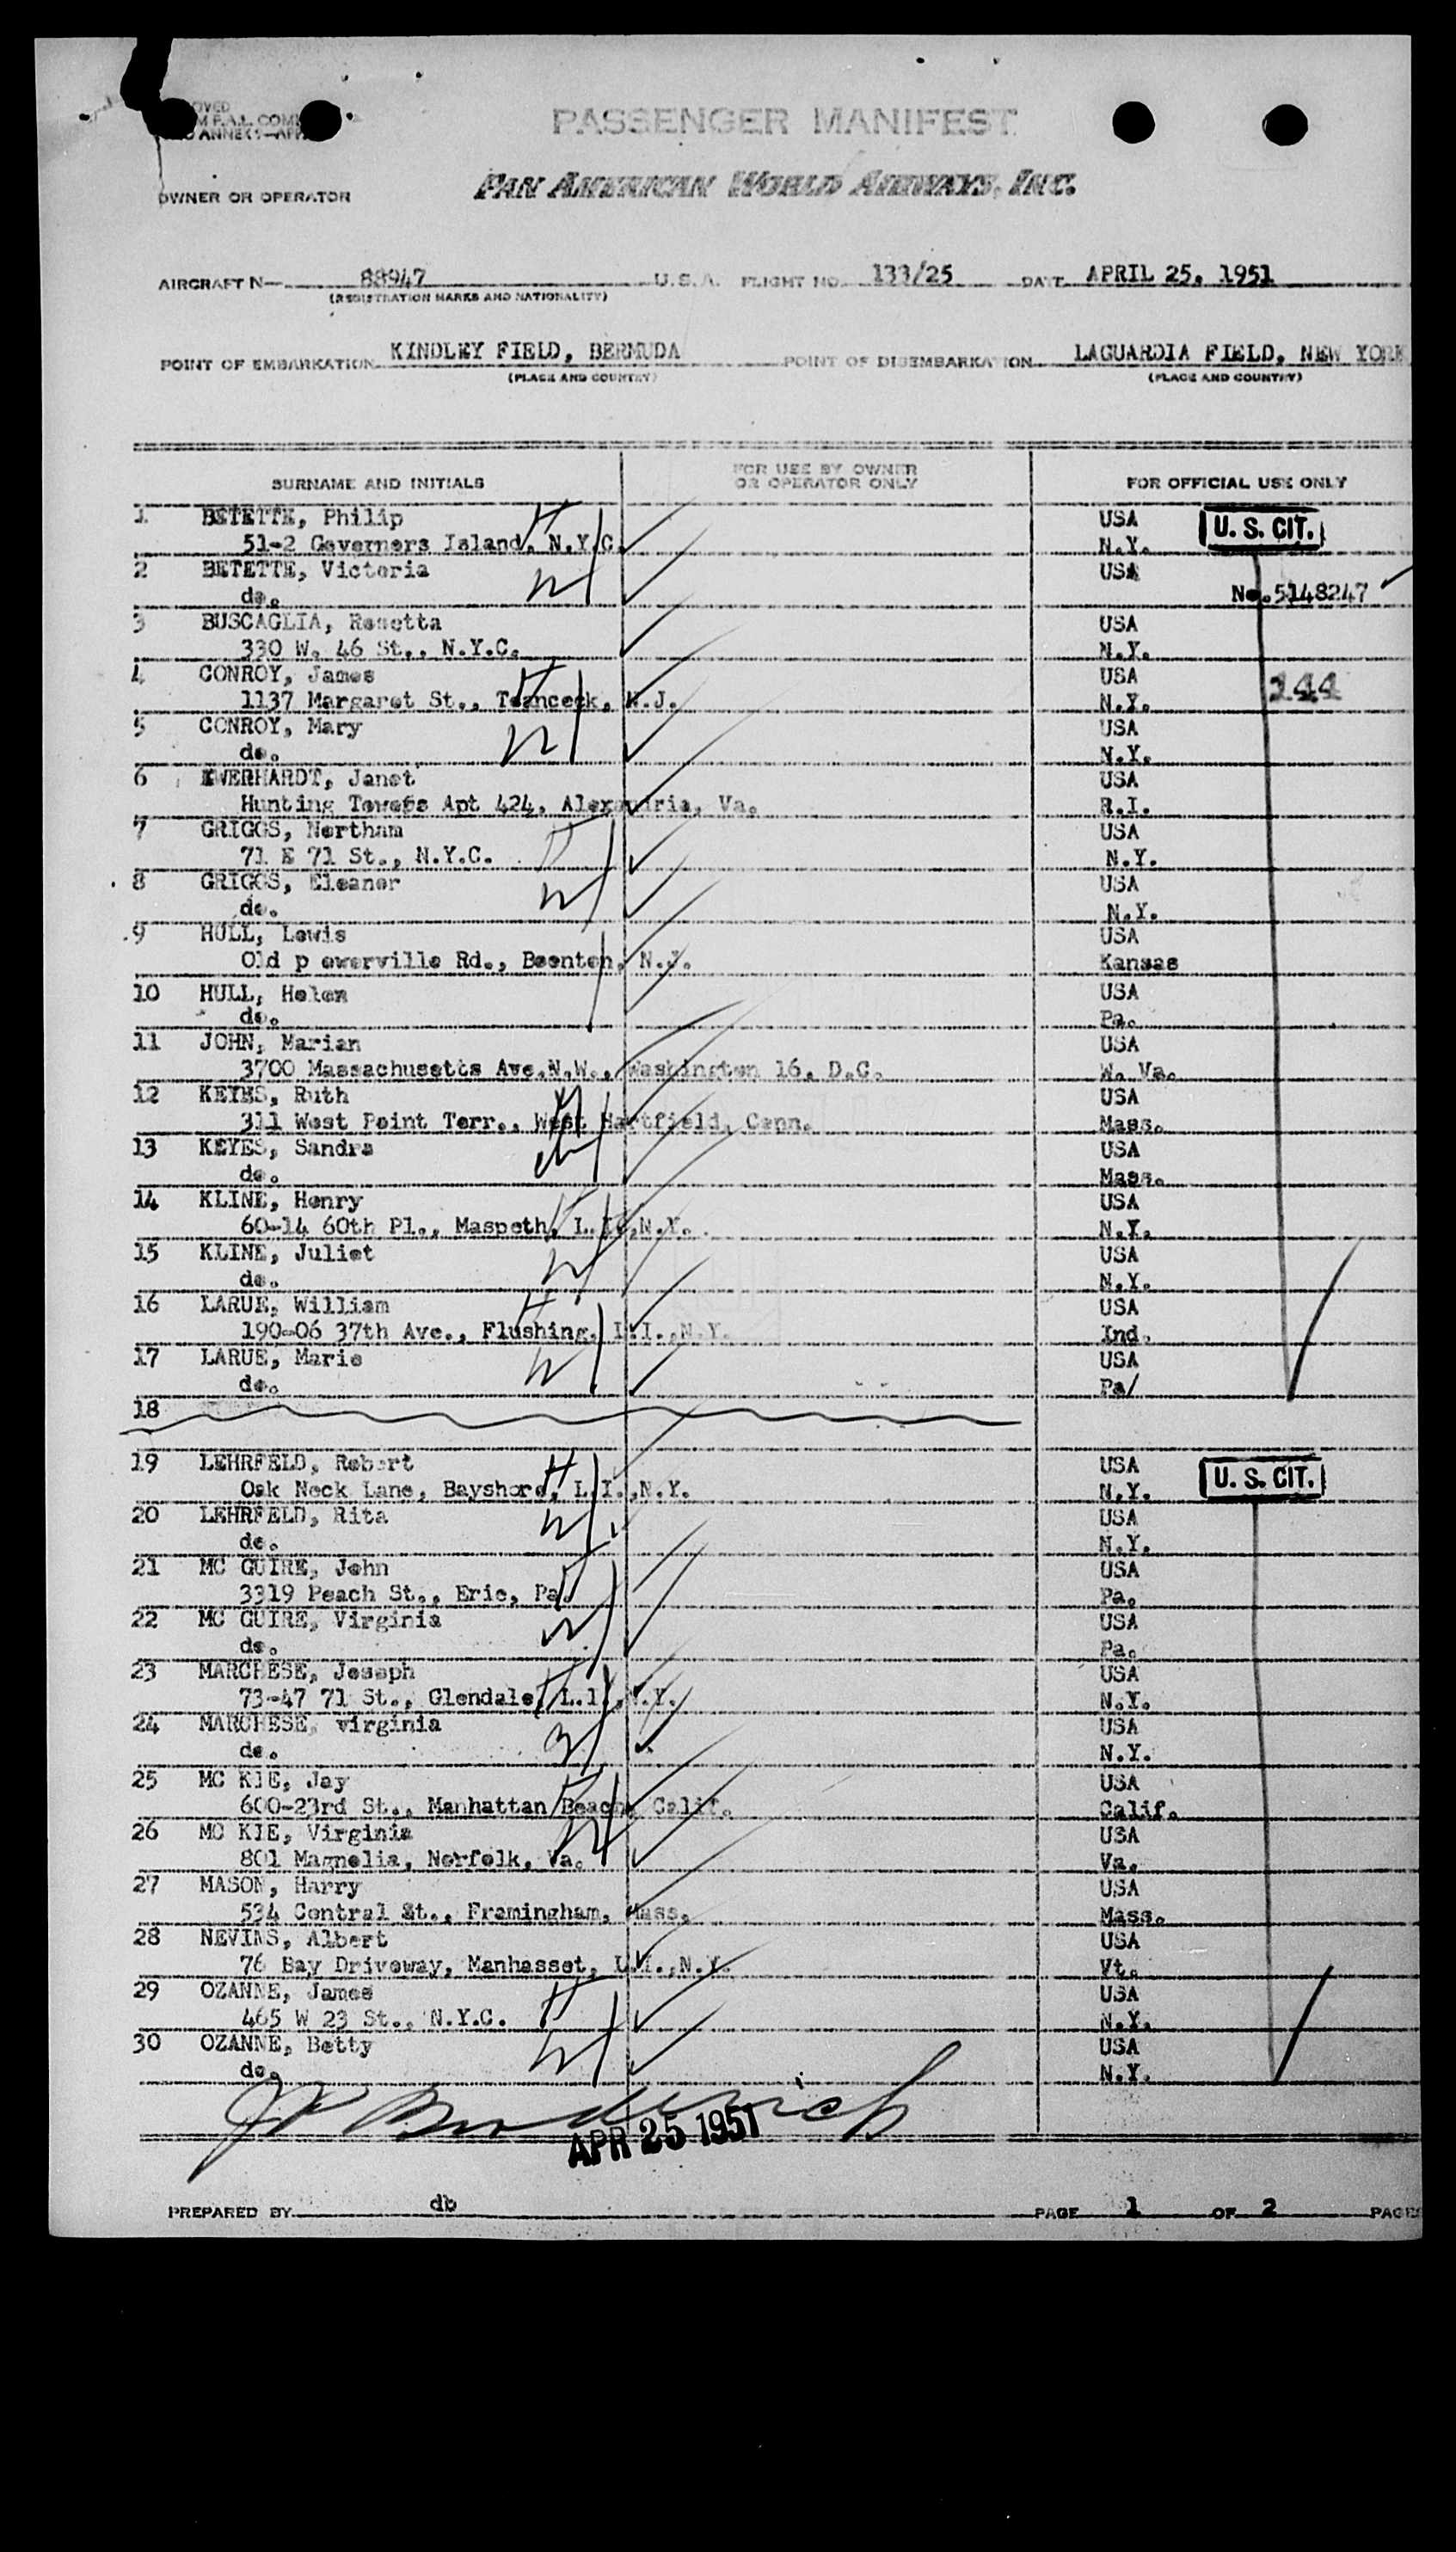 PASSENGER MANIFEST
PAN AMERICAN WORLD AIRWAYS, INC.
OWNER OR OPERATOR
AIRCRAFT N— 88947 U.S.A. FLIGHT NO. 133/25 DATE APRIL 25, 1951
(REGISTRATION MARKS AND NATIONALITY)
POINT OF EMBARKATION KINDLEY FIELD, BERMUDA POINT OF DISEMBARKATION LAGUARDIA FIELD, NEW YORK
(PLACE AND COUNTRY) (PLACE AND COUNTRY)
SURNAME AND INITIALS FOR USE BY OWNER OR OPERATOR ONLY FOR OFFICIAL USE ONLY
1 BETETTE, Philip USA U. S. CIT.
51-2 Governors Island, N.Y.C. N.Y.
2 BETETTE, Victoria USA
do. No.5148247
3 BUSCAGLIA, Rosetta USA
330 W. 46 St., N.Y.C. N.Y.
4 CONROY, James USA 144
1137 Margaret St., Teanceck, N.J. N.Y.
5 CONROY, Mary USA
do. N.Y.
6 EWERHARDT, Janet USA
Hunting Towers Apt 424, Alexandria, Va. R.I.
7 GRIGGS, Northam USA
71 E 71 St., N.Y.C. N.Y.
8 GRIGGS, Eleanor USA
do. N.Y.
9 HULL, Lewis USA
Old p owerville Rd., Boonton, N.J. Kansas
10 HULL, Helen USA
do. Pa.
11 JOHN, Marian USA
3700 Massachusetts Ave.N.W., Washington 16, D.C. W. Va.
12 KEYES, Ruth USA
311 West Point Terr., West Hartfield, Conn. Mass.
13 KEYES, Sandra USA
do. Mass.
14 KLINE, Henry USA
60-14 60th Pl., Maspeth, L.I.,N.Y. N.Y.
15 KLINE, Juliet USA
do. N.Y.
16 LARUE, William USA
190-06 37th Ave., Flushing, L.I.,N.Y. Ind.
17 LARUE, Marie USA
do. Pa/
18
19 LEHRFELD, Robert USA U. S. CIT.
Oak Neck Lane, Bayshore, L.I.,N.Y. N.Y.
20 LEHRFELD, Rita USA
do. N.Y.
21 MC GUIRE, John USA
3319 Peach St., Erie, Pa. Pa.
22 MC GUIRE, Virginia USA
do. Pa.
23 MARCHESE, Joseph USA
73-47 71 St., Glendale, L.I.,N.Y. N.Y.
24 MARCHESE, virginia USA
do. N.Y.
25 MC KIE, Jay USA
600-23rd St., Manhattan Beach, Calif. Calif.
26 MC KIE, Virginia USA
801 Magnolia, Norfolk, Va. Va.
27 MASON, Harry USA
534 Central St., Framingham, Mass. Mass.
28 NEVINS, Albert USA
76 Bay Driveway, Manhasset, L.I.,N.Y. Vt.
29 OZANNE, James USA
465 W 23 St., N.Y.C. N.Y.
30 OZANNE, Betty USA
do. N.Y.
APR 25 1951
PREPARED BY db PAGE 1 OF 2 PAGES